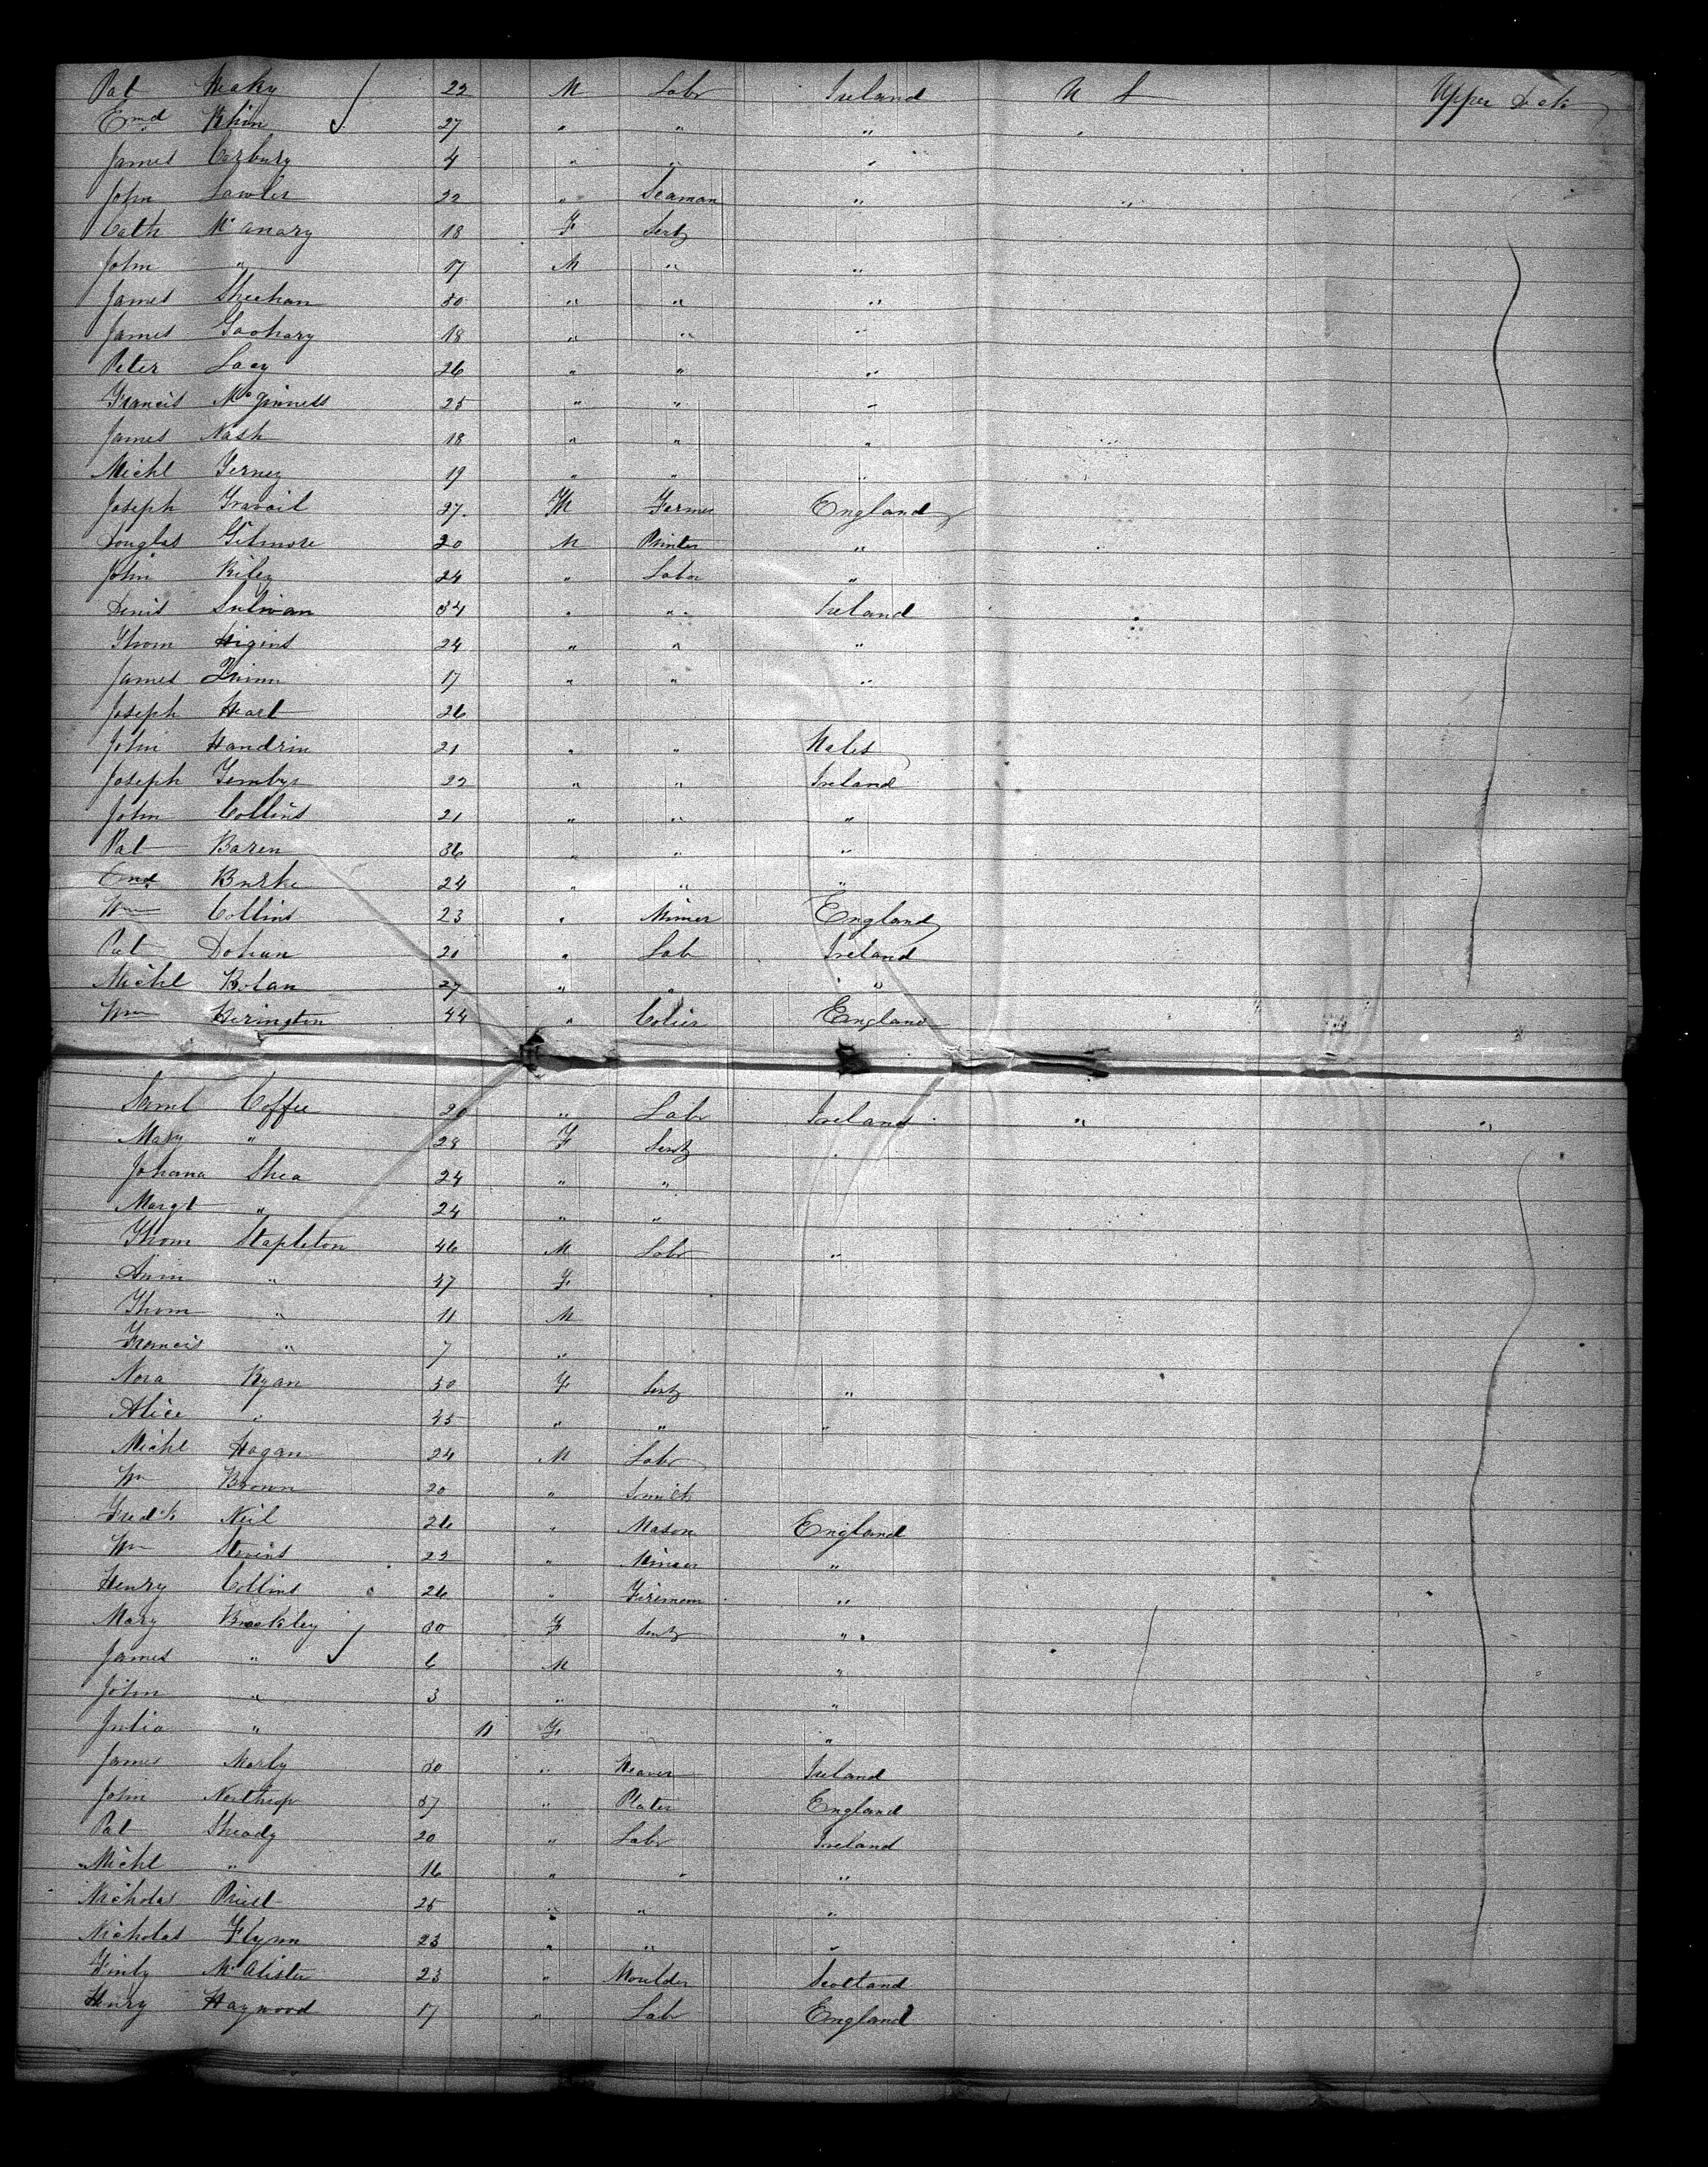 Pat Heaky 22 M Labr Ireland U S Upper Deck
Emd Khin 27 " " " "
James Corbury 4 " " "
John Lawler 22 " Seaman " "
Cath McAnary 18 F Sert
John " 17 M " "
James Sheehan 30 " " "
James Gaohary 18 " " "
Peter Lacy 26 " " "
Francis McGinness 25 " " "
James Nash 18 " " " "
Michl Ferney 19 " " " "
Joseph Travail 27 M Farmer England
Douglas Gilmore 20 M Printer " "
John Riley 24 " Labr "
Denis Sulivan 34 " " Ireland
Thom Higins 24 " " "
James Quinn 17 " " "
Joseph Hart 26
John Handrin 21 " " Wales
Joseph Fembys 22 " " Ireland
John Collins 21 " " "
Pat Baren 36 " " "
Emd Burke 24 " " "
Wm Collins 23 " Miner England
Pat Dohan 21 " Lab Ireland
Michl Bolan 27 " " "
Wm Herington 44 " Colier England
Saml Coffee 20 " Labr Ireland " "
Mary " 28 F Sert "
Johana Shea 24 " "
Margt " 24 " "
Thom Stapleton 46 M Labr "
Ann " 47 F
Thom " 11 M
Francis " 7 "
Nora Ryan 30 F Sert "
Alice " 35 " " "
Michl Hogan 24 M Labr
Wm Brown 20 " Smith
Fredk Neil 26 " Mason England
Wm Stevens 22 " Miner "
Henry Collins 26 " Fireman "
Mary Brockley 30 F Sert "
James " 6 M "
John " 3 " "
Julia " 11 F "
James Marly 30 " Weaver Ireland
John Northrop 37 " Plater England
Pat Sheady 20 " Labr Ireland
Michl " 16 " " "
Nicholas Priest 25 " " "
Nicholas Flynn 23 " " "
Finly McAlister 23 " Moulder Scotland
Henry Haywood 17 " Labr England